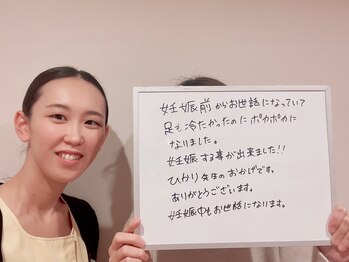 妊娠前からお世話になっていて
足も冷たかったのにポカポカに
なりました。
妊娠する事が出来ました!!
ひかり先生のおかげです。
ありがとうございます。
妊娠中もお世話になります。